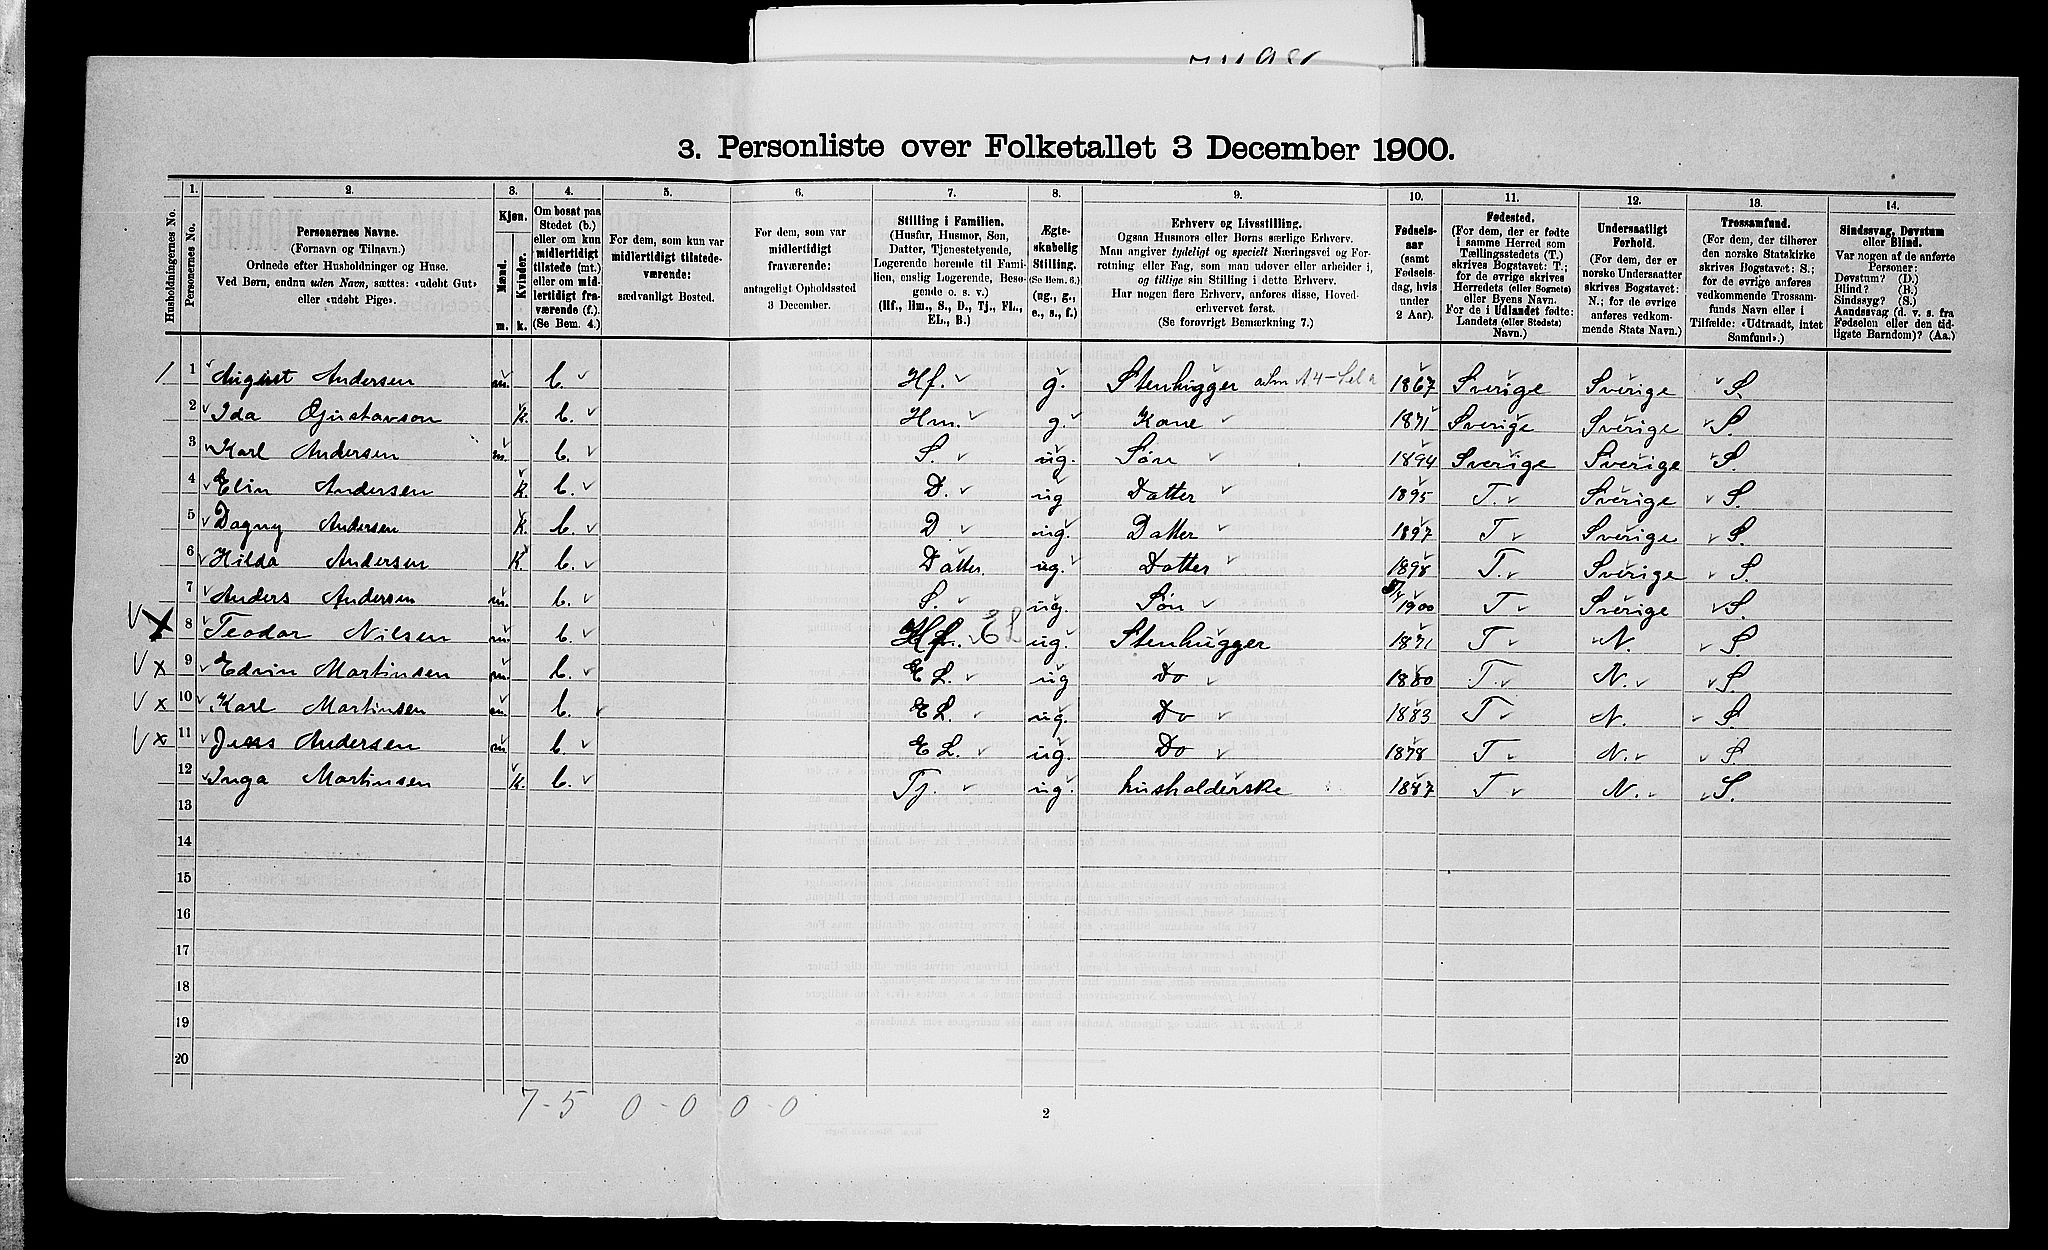 3. Personliste over Folketallet 3 December 1900.
Husholdningernes No.
1.
Personernes No.
2.
Personernes Navne.
(Fornavn og Tilnavn.)
Ordnede efter Husholdninger og Huse.
Ved Børn, endnu uden Navn, sættes: «udøbt Gut»
eller «udøbt Pige».
3.
Kjøn.
Mænd.
Kvinder.
m.
k.
4.
Om bosat paa
Stedet (b.)
eller om kun
midlertidigt
tilstede (mt.)
eller om mid-
lertidigt fra-
værende (f.).
(Se Bem. 4.)
5.
For dem, som kun var
midlertidigt tilstede-
værende:
sædvanligt Bosted.
6.
For dem, som var
midlertidigt
fraværende:
antageligt Opholdssted
3 December.
7.
Stilling i Familien.
(Husfar, Husmor, Søn,
Datter, Tjenestetyende,
Logerende hørende til Fami-
lien, enslig Logerende, Besø-
gende o. s. v.)
(Hf., Hm., S., D., Tj., FL.,
EL., B.)
8.
Ægte-
skabelig
Stilling.
(Se Bem. 6.)
(ug., g.,
e., s., f.)
9.
Erhverv og Livsstilling.
Ogsaa Husmors eller Børns særlige Erhverv.
Man angiver tydeligt og specielt Næringsvei og For-
retning eller Fag, som man udøver eller arbeider i,
og tillige sin Stilling i dette Erhverv.
Har nogen flere Erhverv, anføres disse, Hoved-
erhvervet først.
(Se forøvrigt Bemærkning 7.)
10.
Fødsels-
aar
(samt
Fødsels-
dag, hvis
under
2 Aar).
11.
Fødested.
(For dem, der er fødte
i samme Herred som
Tællingsstedets (T.)
skrives Bogstavet: T.;
for de øvrige skrives
Herredets (eller Sognets)
eller Byens Navn.
For de i Udlandet fødte:
Landets (eller Stedets)
Navn.)
12.
Undersaatligt
Forhold.
(For dem, der er
norske Undersaatter
skrives Bogstavet:
N.; for de øvrige
anføres vedkom-
mende Stats Navn.)
13.
Trossamfund.
(For dem, der tilhører
den norske Statskirke
skrives Bogstavet: S.;
for de øvrige anføres
vedkommende Trossam-
funds Navn eller i
Tilfælde: «Udtraadt, intet
Samfund».)
14.
Sindssvag, Døvstum
eller Blind.
Var nogen af de anførte
Personer:
Døvstum? (D.)
Blind? (B.)
Sindssyg? (S.)
Aandssvag (d. v. s. fra
Fødselen eller den tid-
ligste Barndom)? (Aa.)
1 1 August Andersen m. b. Hf. g. Stenhugger 1867 Sverige Sverige S.
2 Ida Gustavson k. b. Hm. g. Kone 1871 Sverige Sverige S.
3 Karl Andersen m. b. S. ug. Søn 1894 Sverige Sverige S.
4 Elin Andersen K. b. D. ug Datter 1895 T. Sverige S.
5 Dagny Andersen K. b. D. ug. Datter 1897 T Sverige S.
6 Hilda Andersen K. b. Datter. ug. Datter 1898 T. Sverige S.
7 Anders Andersen m. b. S. ug. Søn 1900 T Sverige S.
8 Teodor Nilsen m. b. Hf. EL ug. Stenhugger 1871 T N. S.
9 Edvin Martinsen m. b. EL. ug Do 1880 T. N. S.
10 Karl Martinsen m. b. EL. ug. Do 1883 T N. S.
11 Jens Andersen m. b. EL. ug. Do 1878 T N. S.
12 Inga Martinsen k. b. Tj. ug. husholderske 1887 T N. S.
13
14
15
16
17
18
19
20
7-5 0-0 0-0
2